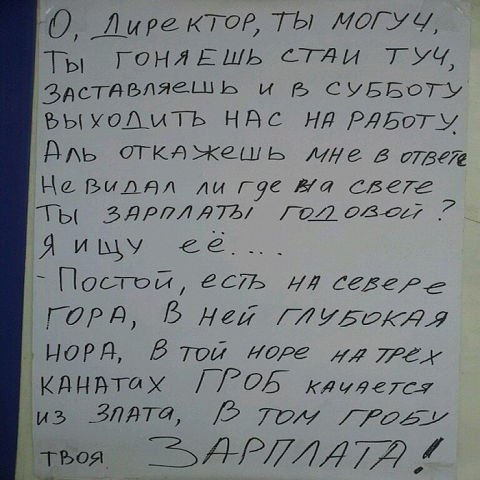 О, Директор, ты могуч,
Ты гоняешь стаи туч,
Заставляешь и в субботу
выходить нас на работу.
Аль откажешь мне в ответе
Не видал ли где на свете
Ты зарплаты годовой?
Я ищу её....
- Постой, есть на севере
гора, в ней глубокая
нора, в той норе на трёх
канатах ГРОБ качается
из злата, в том гробу
твоя ЗАРПЛАТА!